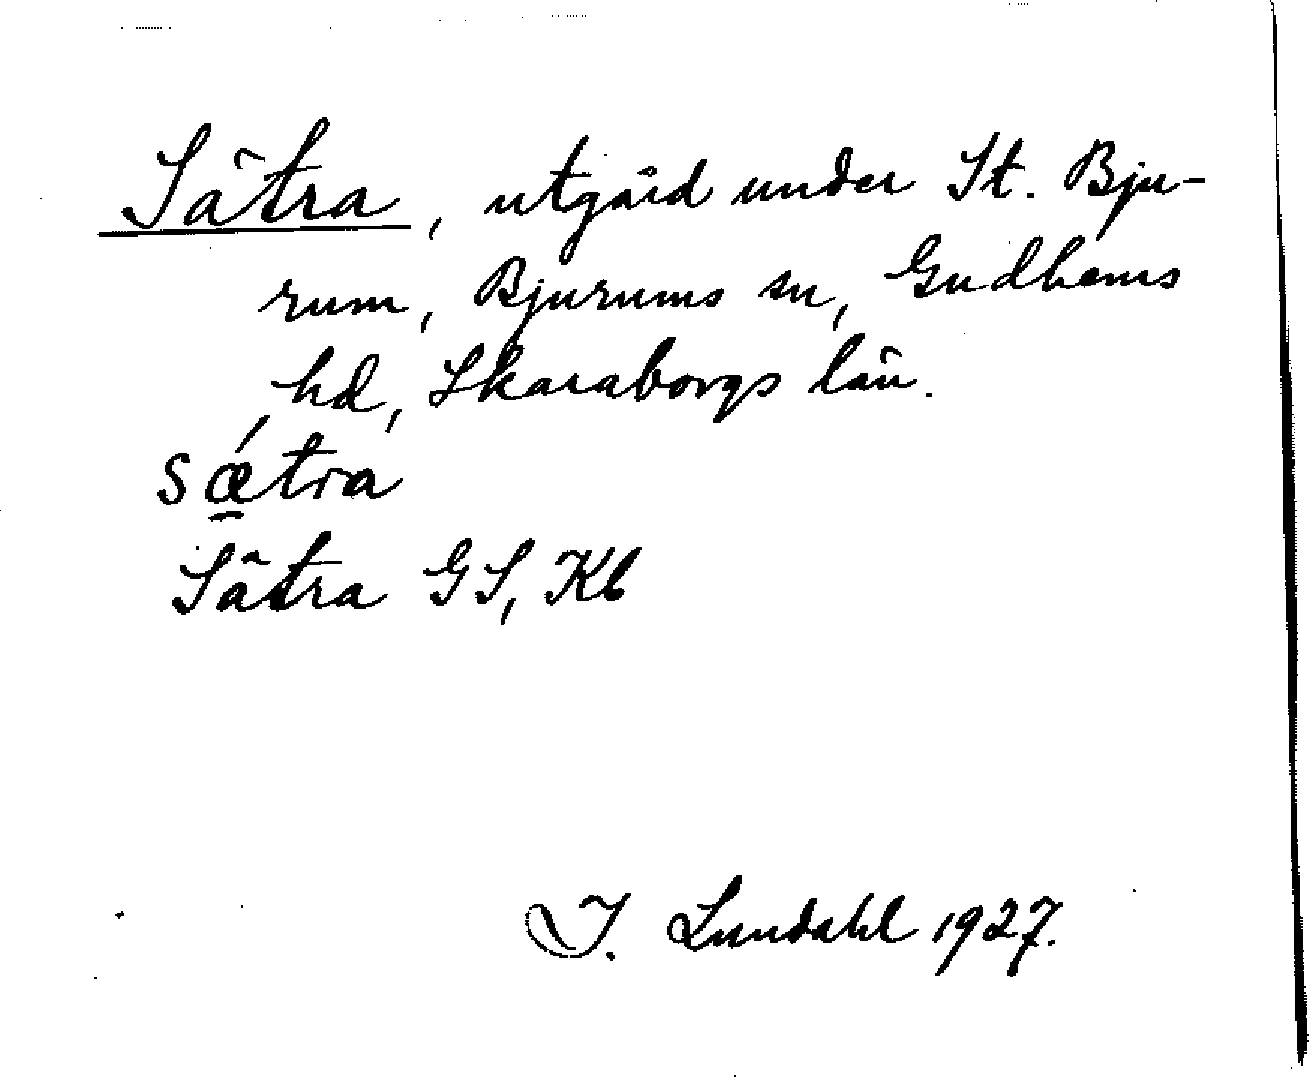 Sätra, utgård under St. Bju-
rum, Bjurums sn, Gudhems
hd, Skaraborgs län.
sǽ̱tra
Sätra GS, Kb
I. Lundahl 1927.